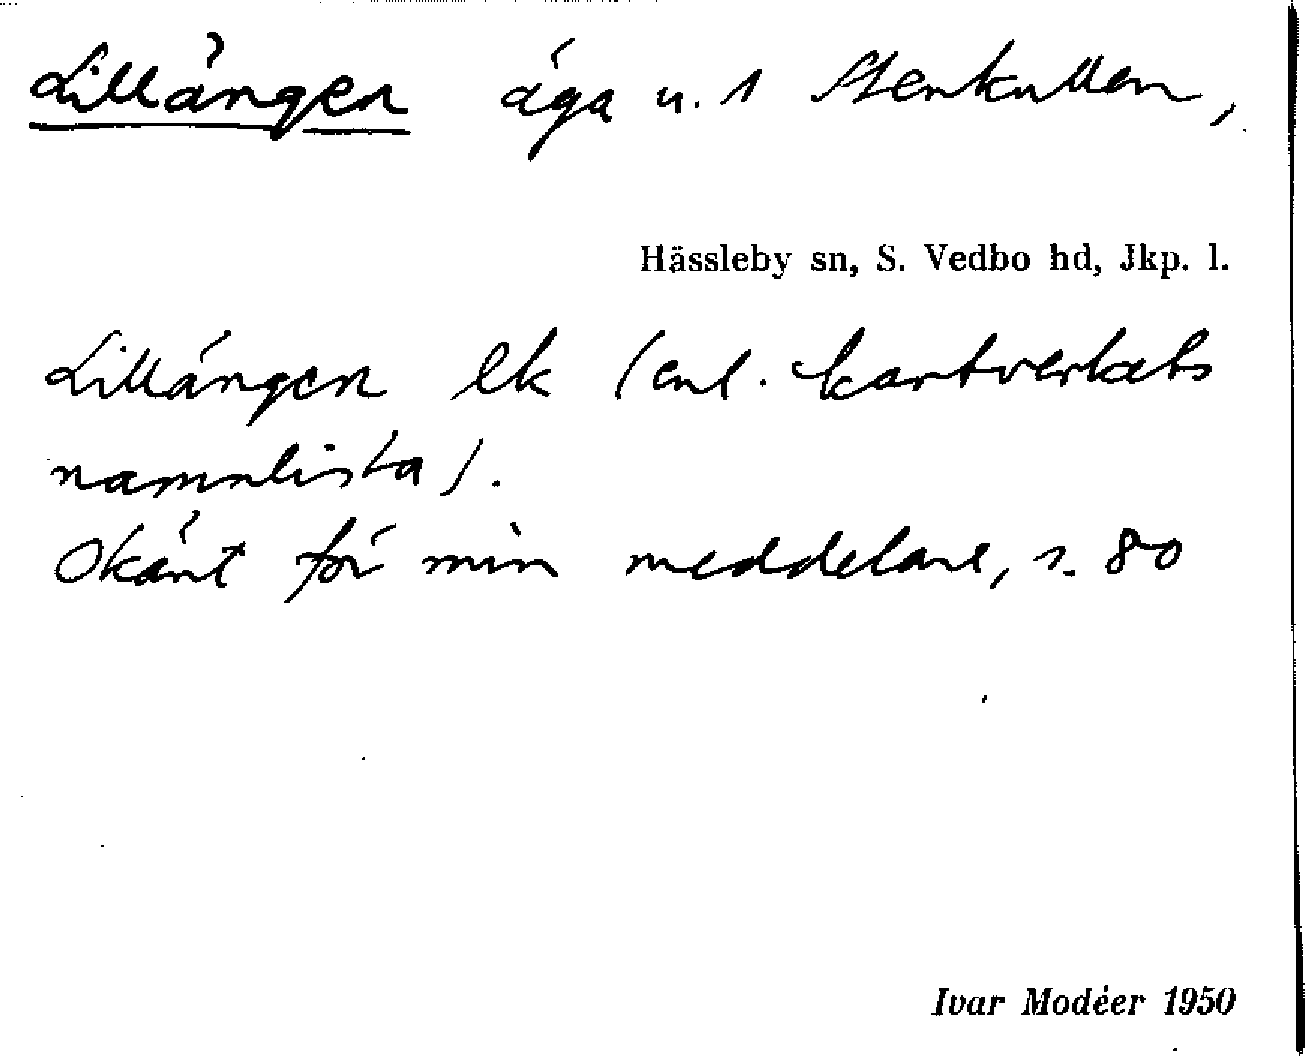 Lillängen äga u. 1 Stenkullen,
Hässleby sn, S. Vedbo hd, Jkp. l.
Lillängen ek (enl. kartverkets
namnlista).
Okänt för min meddelare, s. 80
Ivar Modéer 1950